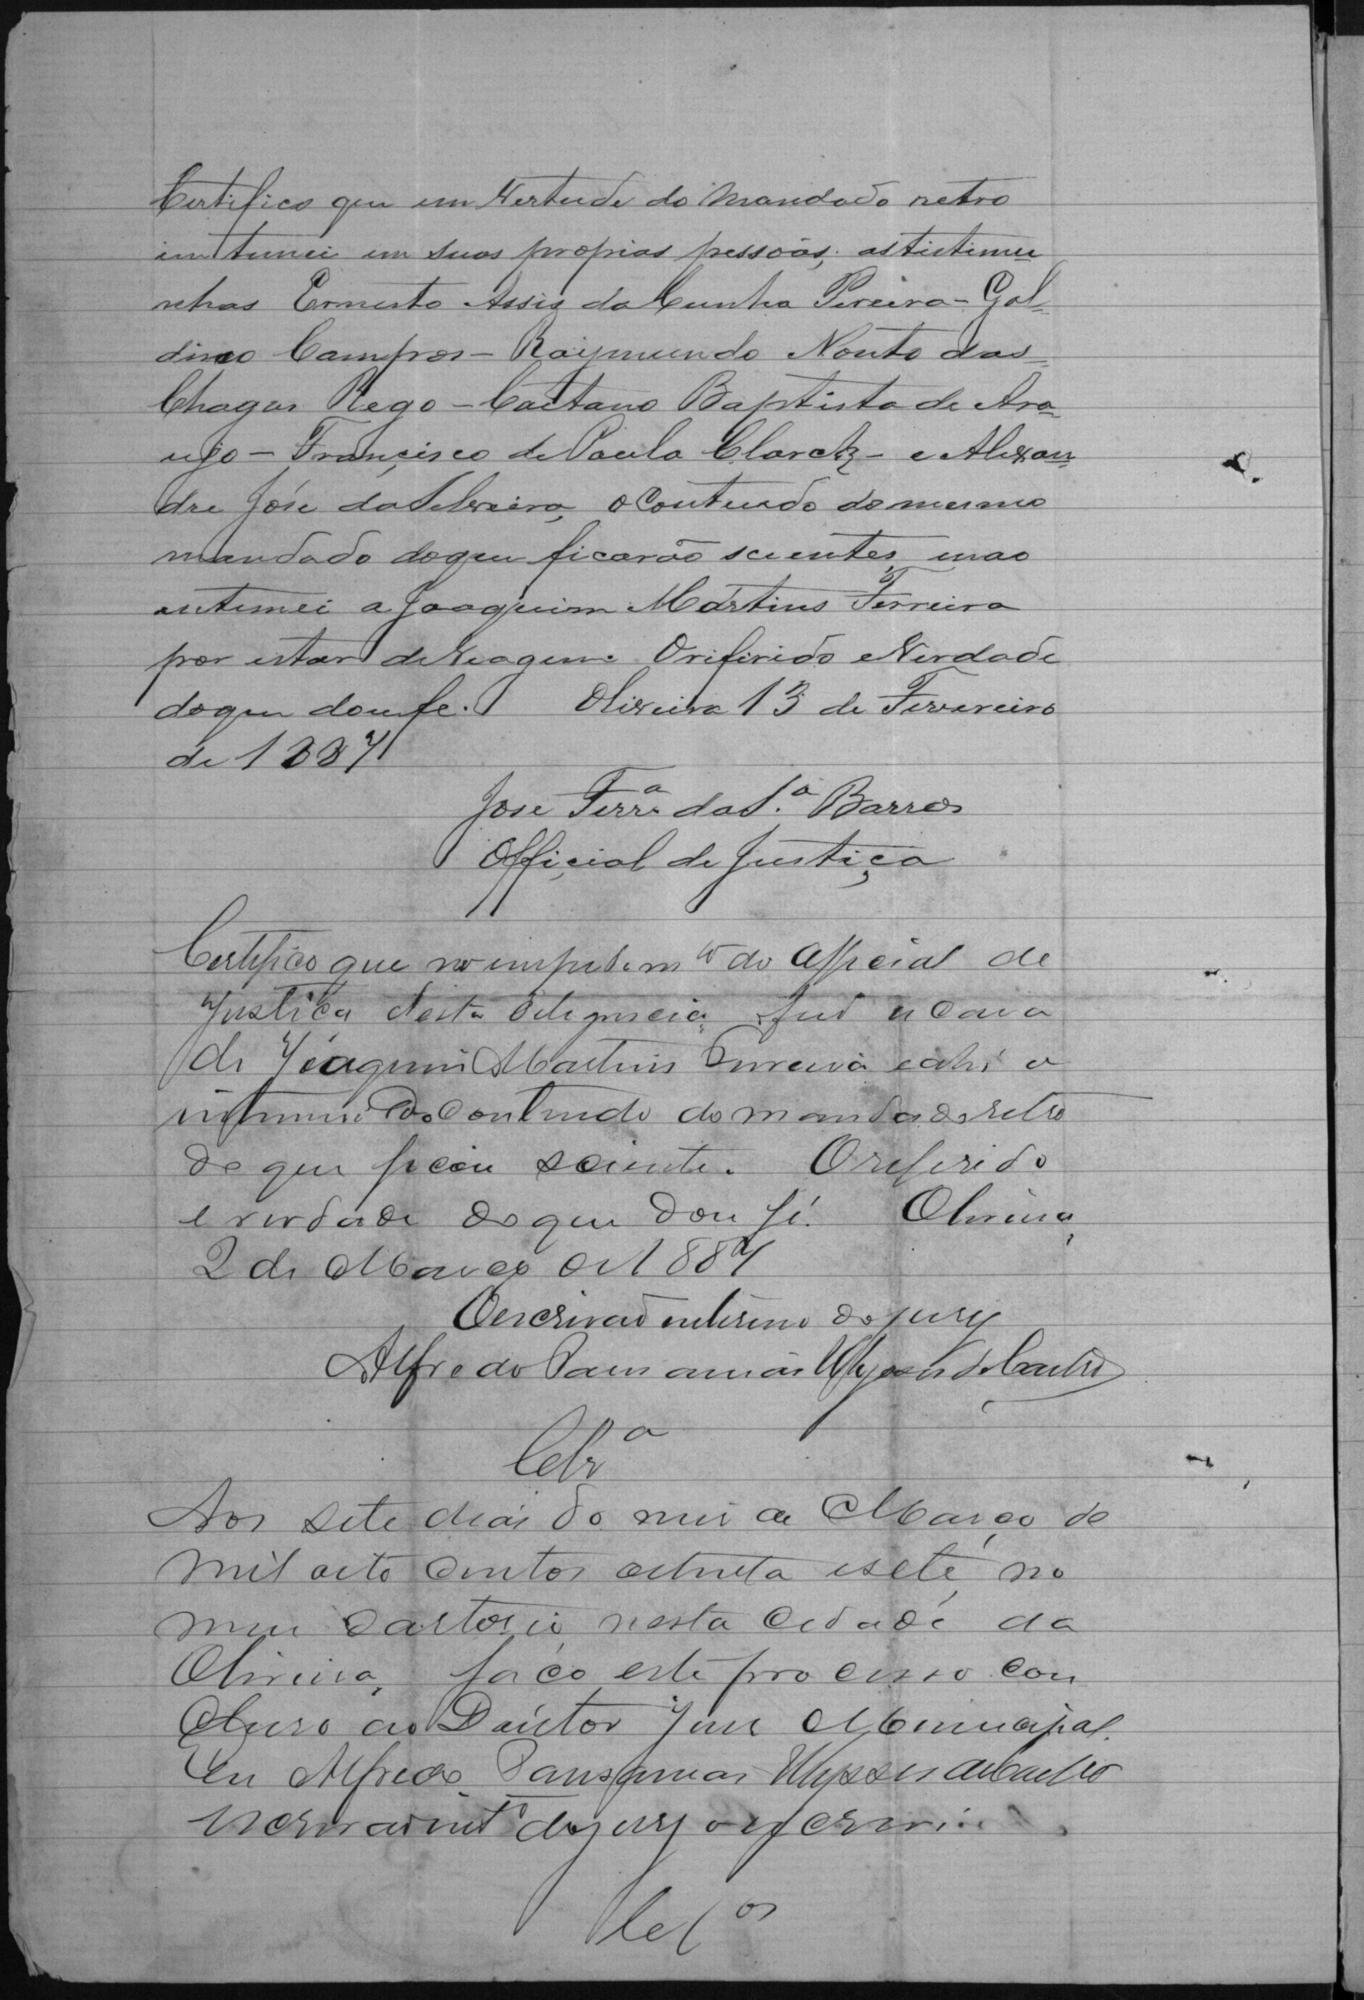 Certifico que em vertude do Mandado retro
intimei em suas proprias pessoas, as tistimu
nhas Ernesto Assis da Cunha Pereira - Gal-
dino Campos - Raymundo Nonto das
Chagas Rego - Caetano Baptista de Ara-
ujo - Francisco de Paula Clarck - e Alexan
dre José da Silveira, o Contiudo do mesmo
mandado do que ficarão scientes, e nao
intimei a Joaquim Martins Ferreira
por estar de viagem. O riferido e Verdade
do que dou fe. Oliveira 13 de Fevereiro
de 1887
Jose Ferr.ª da S.ª Barros
Official de Justiça
Certifico que no impedim.to do Official de
Justica desta deligencia, fui a casa
de Joaquim Martins Ferreira e ahi o
intimei do Contiudo do mandado retro
do que ficou sciente. O referido
e verdade do que dou fé. Oliveira,
2 de Março de 1887
O escrivão interino do jury
Alfredo Ulysses de Castro
Cls.ª
Aos sete dias do mes de Março de
mil oito centos oitenta e sete, no
meu Cartorio nesta cidade da
Oliveira, faço este processo con
cluso ao Doutor Juis Municipal.
Eu Alfredo Ulysses de Castro
escrivão int.º do jury o escrivi.